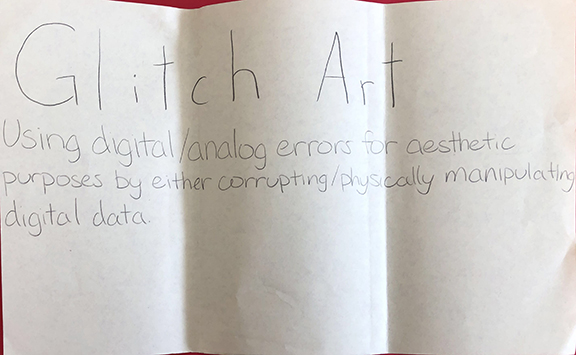 Glitch Art
Using digital/analog errors for aesthetic
purposes by either corrupting/physically manipulating
digital data.